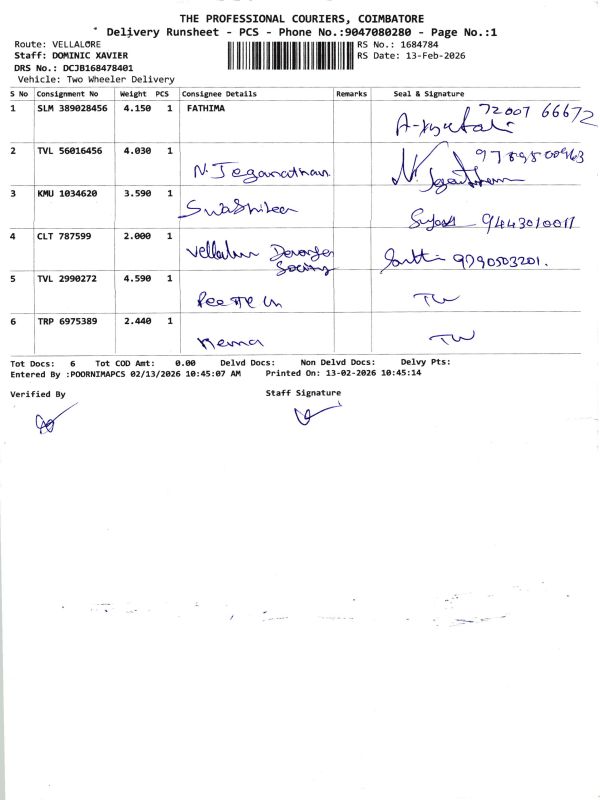 THE PROFESSIONAL COURIERS, COIMBATORE
Delivery Runsheet - PCS - Phone No.:9047080280 - Page No.:1
Route: VELLALORE
RS No.: 1684784
Staff: DOMINIC XAVIER
RS Date: 13-Feb-2026
DRS No.: DCJB168478401
Vehicle: Two Wheeler Delivery
S No Consignment No Weight PCS Consignee Details Remarks Seal & Signature
1 SLM 389028456 4.150 1 FATHIMA 72007 66672
2 TVL 56016456 4.030 1 N. Jeganathan
3 KMU 1034620 3.590 1 9443010011
4 CLT 787599 2.000 1 9790503201.
5 TVL 2990272 4.590 1 TW
6 TRP 6975389 2.440 1 TW
Tot Docs: 6 Tot COD Amt: 0.00 Delvd Docs: Non Delvd Docs: Delvy Pts:
Entered By :POORNIMAPCS 02/13/2026 10:45:07 AM Printed On: 13-02-2026 10:45:14
Verified By Staff Signature